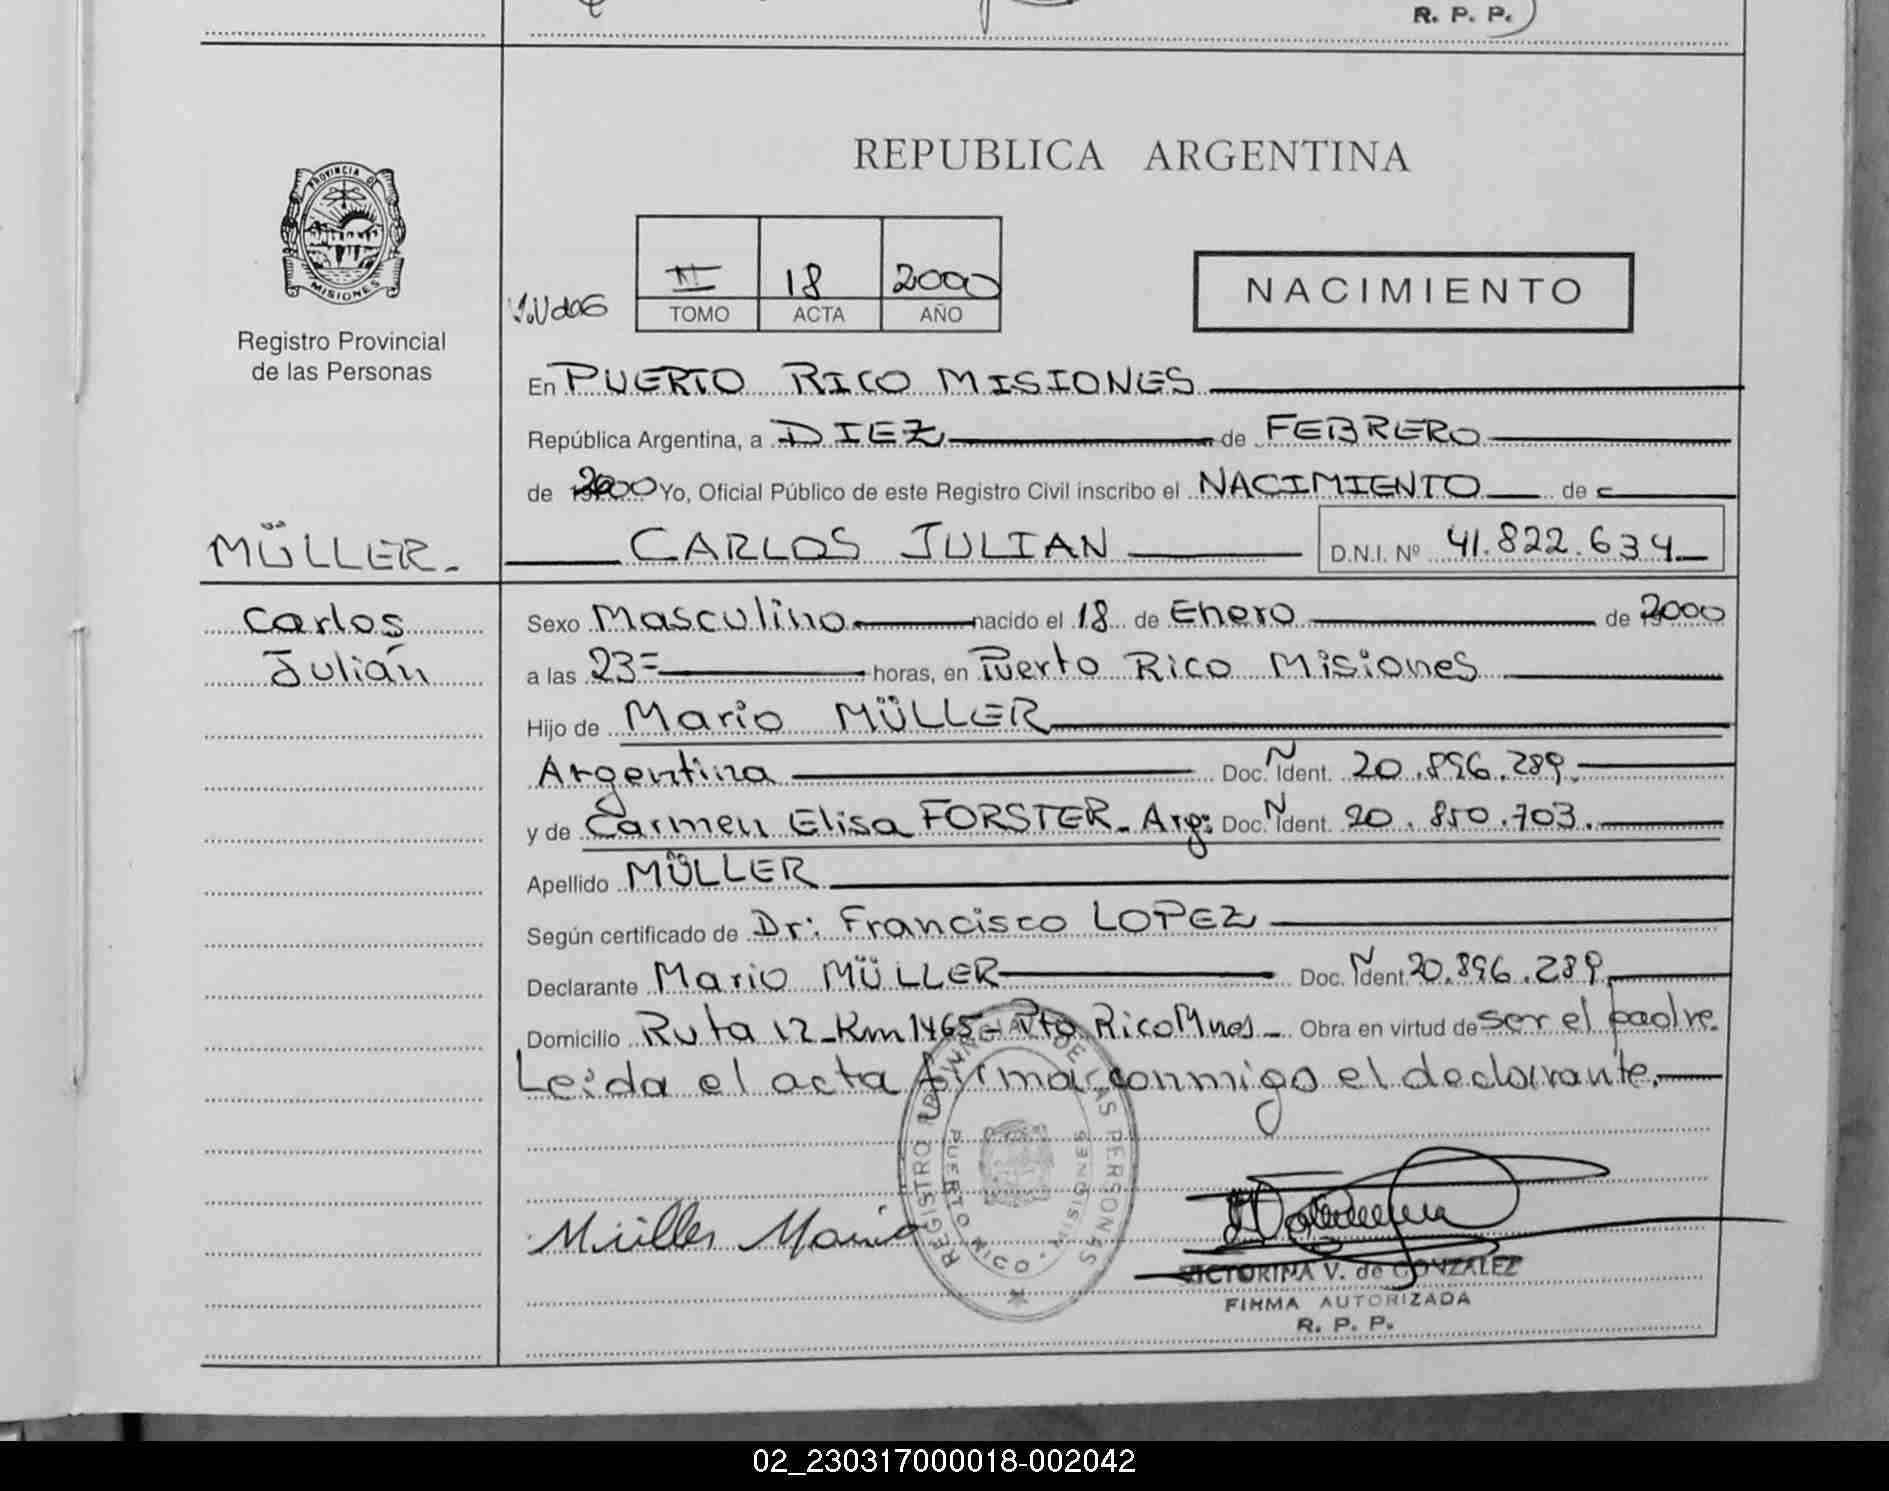 R. P. P.
PROVINCIA DE
MISIONES
Registro Provincial
de las Personas
REPUBLICA ARGENTINA
18 2000
TOMO ACTA AÑO
NACIMIENTO
En PUERTO RICO MISIONES
República Argentina, a DIEZ de FEBRERO
de 2000 Yo, Oficial Público de este Registro Civil inscribo el NACIMIENTO de
MÜLLER. CARLOS JULIAN D.N.I. Nº 41.822.634
Carlos
Julián
Sexo Masculino nacido el 18 de Enero de 2000
a las 23= horas, en Puerto Rico Misiones
Hijo de Mario MÜLLER
Argentina Doc. Ñ Ident. 20.896.289.
y de Carmen Elisa FORSTER. Arg: Doc. N Ident. 20.850.703.
Apellido MÜLLER
Según certificado de Dr: Francisco LOPEZ
Declarante Mario MÜLLER Doc. Ñ Ident. 20.896.289
Domicilio Ruta 12-Km 1465- Pto Rico Mnes- Obra en virtud de ser el padre.
Leida el acta firma conmigo el declarante.
REGISTRO PROVINCIAL DE LAS PERSONAS
PUERTO RICO - MISIONES
Müller Mario
VICTORINA V. de GONZALEZ
FIRMA AUTORIZADA
R. P. P.
02_230317000018-002042